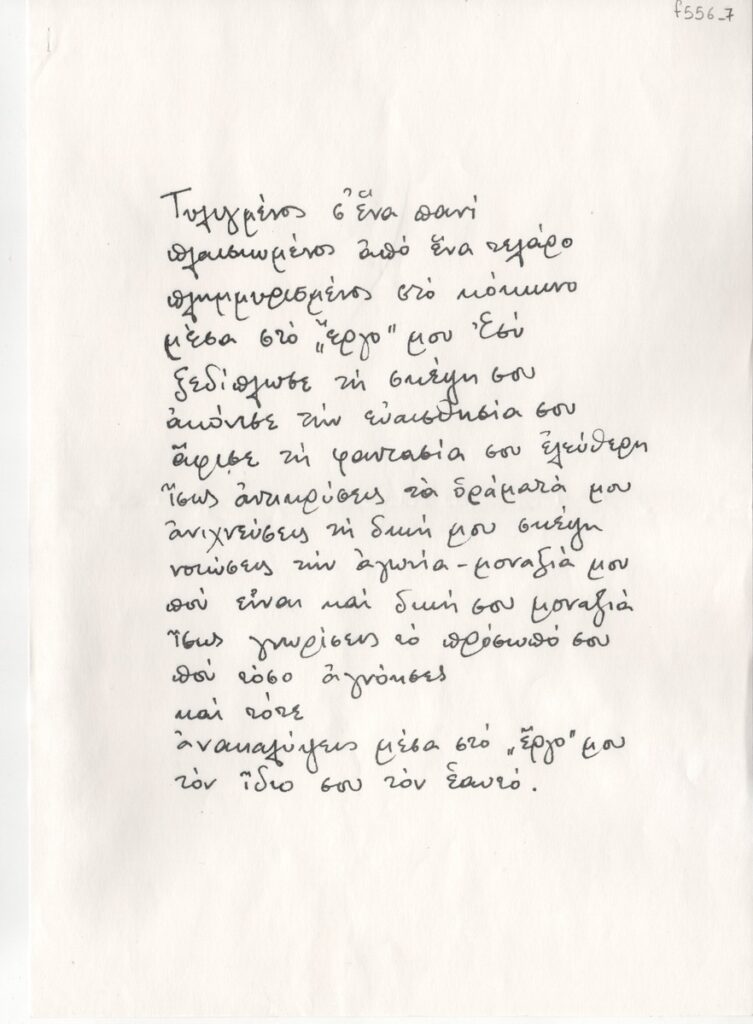 f556_7
Τυλιγμένος σ' ἕνα πανί
πλαισιωμένος ἀπό ἕνα τελάρο
πλημμυρισμένος στό κόκκινο
μέσα στό „ἔργο" μου Ἐσύ
ξεδίπλωσε τή σκέψη σου
ἀκόνισε τήν εὐαισθησία σου
ἄφησε τή φαντασία σου ἐλεύθερη
ἴσως ἀντικρύσεις τά ὁράματά μου
ἀνιχνεύσεις τή δική μου σκέψη
νοιώσεις τήν ἀγωνία - μοναξιά μου
πού εἶναι καί δική σου μοναξιά
ἴσως γνωρίσεις τό πρόσωπό σου
πού τόσο ἀγνόησες
καί τότε
ἀνακαλύψεις μέσα στό „ἔργο" μου
τόν ἴδιο σου τόν ἑαυτό.